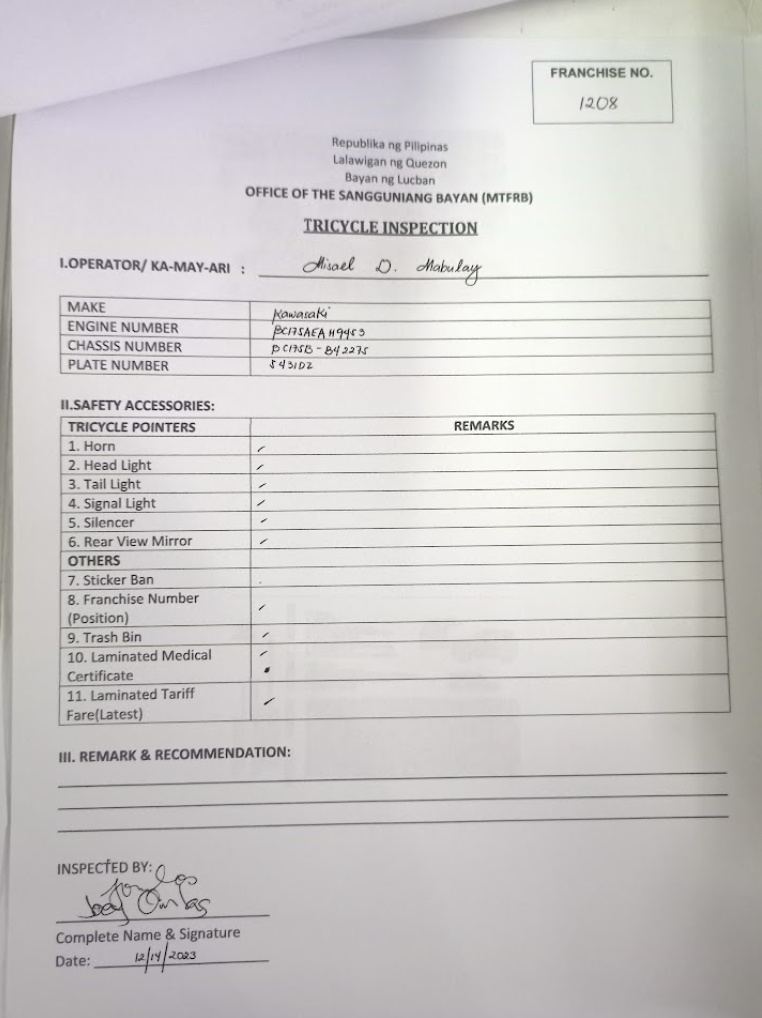 FRANCHISE NO.
1208
Republika ng Pilipinas
Lalawigan ng Quezon
Bayan ng Lucban
OFFICE OF THE SANGGUNIANG BAYAN (MTFRB)
TRICYCLE INSPECTION
I.OPERATOR/ KA-MAY-ARI : Misael D. Mabulay
MAKE Kawasaki
ENGINE NUMBER BC175AEAH9453
CHASSIS NUMBER BC175B-B42275
PLATE NUMBER 5431DZ
II.SAFETY ACCESSORIES:
TRICYCLE POINTERS REMARKS
1. Horn ✓
2. Head Light ✓
3. Tail Light ✓
4. Signal Light ✓
5. Silencer ✓
6. Rear View Mirror ✓
OTHERS
7. Sticker Ban
8. Franchise Number
(Position) ✓
9. Trash Bin ✓
10. Laminated Medical ✓
Certificate
11. Laminated Tariff ✓
Fare(Latest)
III. REMARK & RECOMMENDATION:
INSPECTED BY:
Complete Name & Signature
Date: 12/14/2023